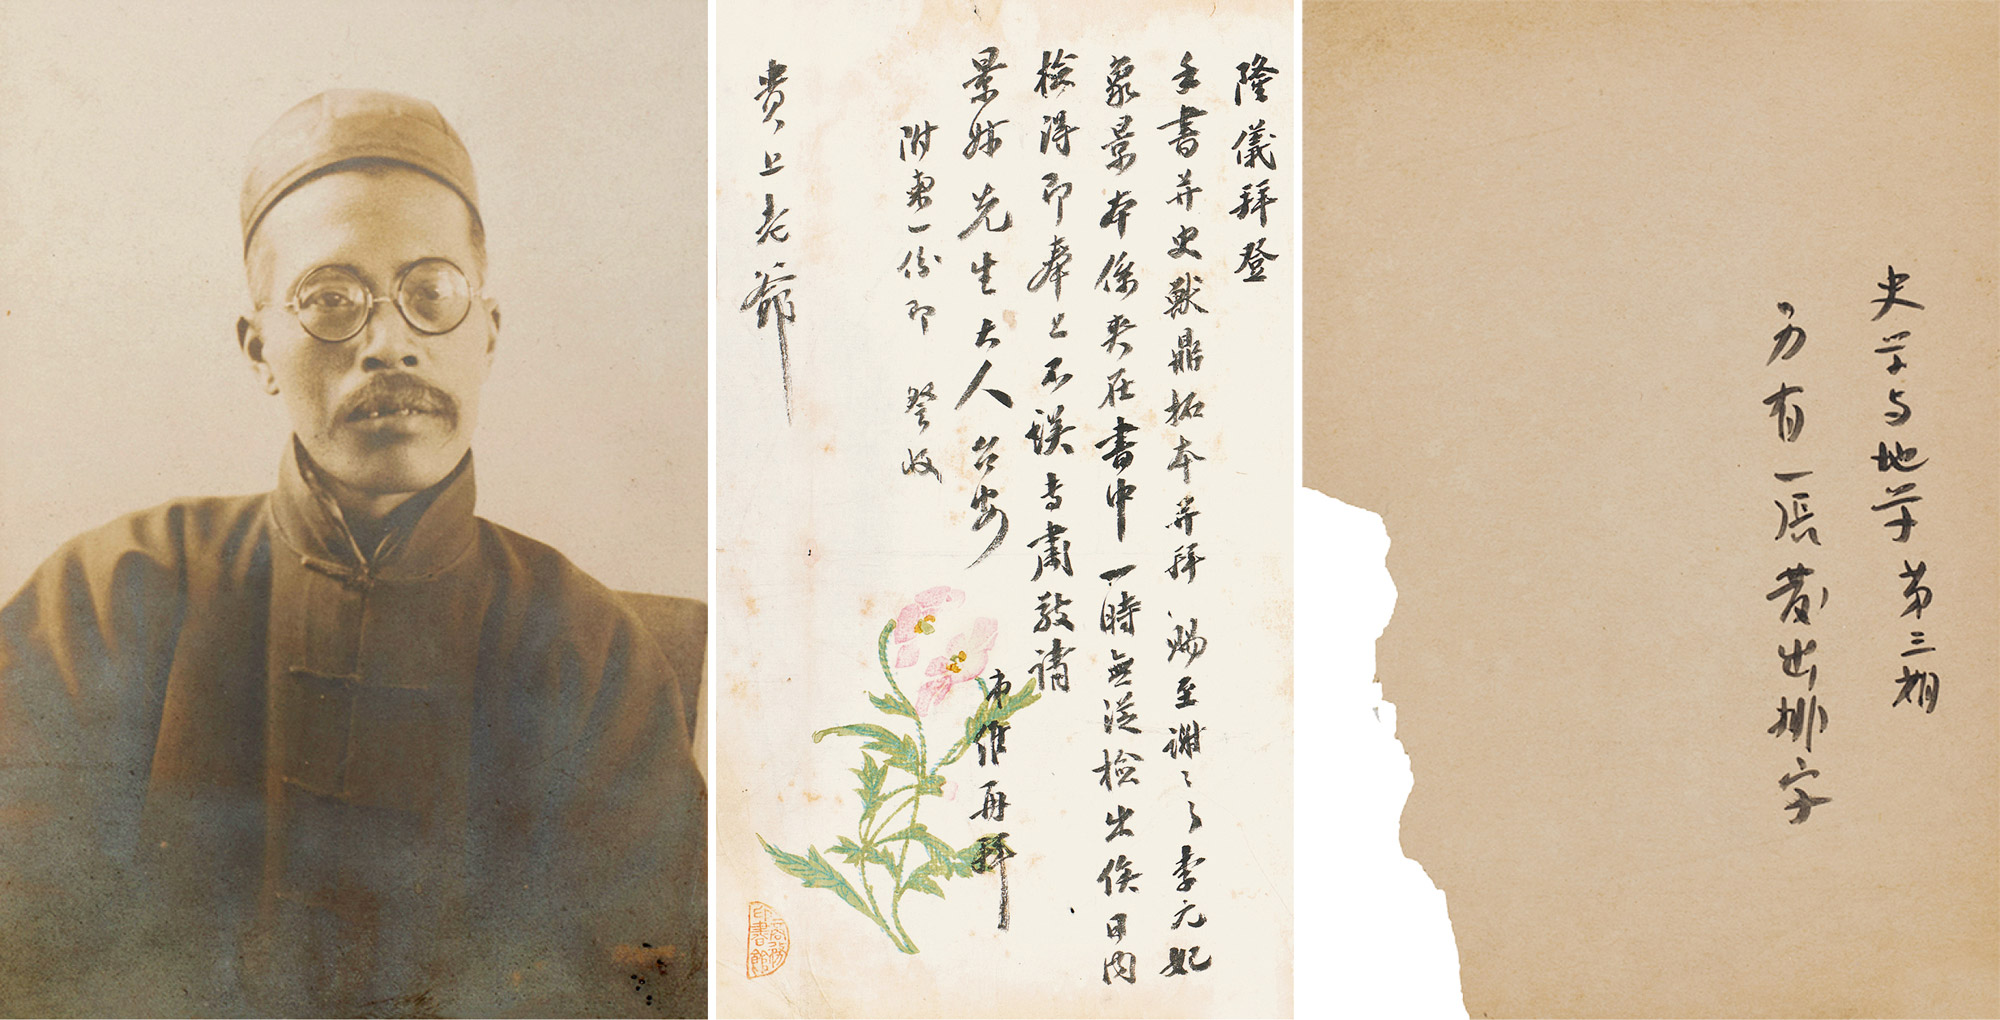 隆儀拜登
手書并史獸鼎拓本并拜 賜至謝々々李元妃
象景本係夾在書中一時無從檢出俟日內
檢得即奉上不誤專肅敬請
景叔先生大人台安
弟維再拜
附一份即 詧收
貴上老爺
商務
印書館
史学与地学第三期
另有一张出排字